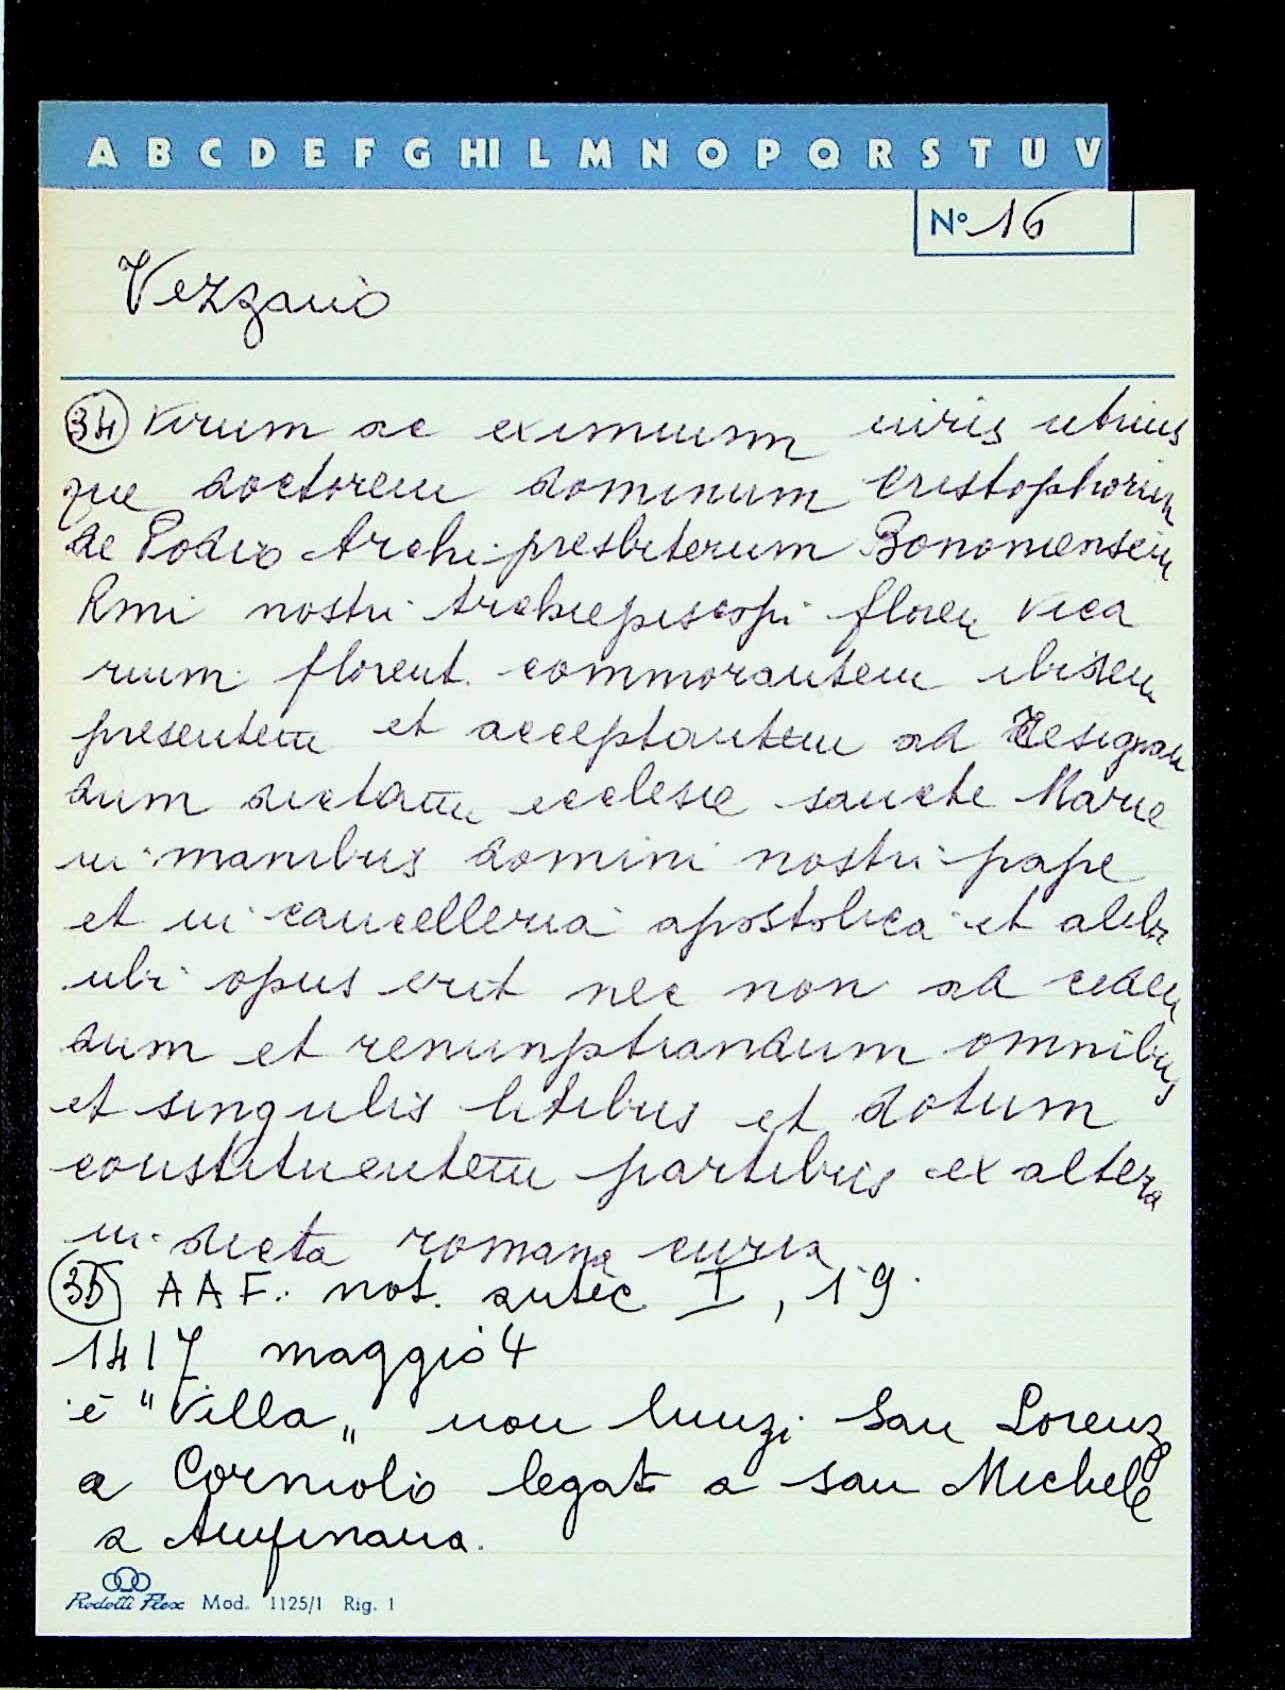 A B C D E F G HI L M N O P Q R S T U V
N° 16
Vezzano
34 virum ac eximium iuris utrius
que doctorem dominum Cristophorum
de Podio Archipresbiterum Bononiensem
Rmi nostri Archiepiscopi floren Vica
rium florent. commorantem ibidem
presentem et acceptantem ad Resignan
dum dictam ecclesie sancte Marie
in manibus domini nostri pape
et in cancelleria apostolica et alibi
ubi opus erit nec non ad ceden
dum et renunptiandum omnibus
et singulis litibus et dotum
constituentem partibus ex altera
in dicta romana curia
35 AAF. not. antec. I, 19.
1417 maggio 4
è "Villa" non lungi San Lorenzo
a Corniolo legato a san Michele
a Ampinana.
Rodotti Flex Mod. 1125/1 Rig. 1